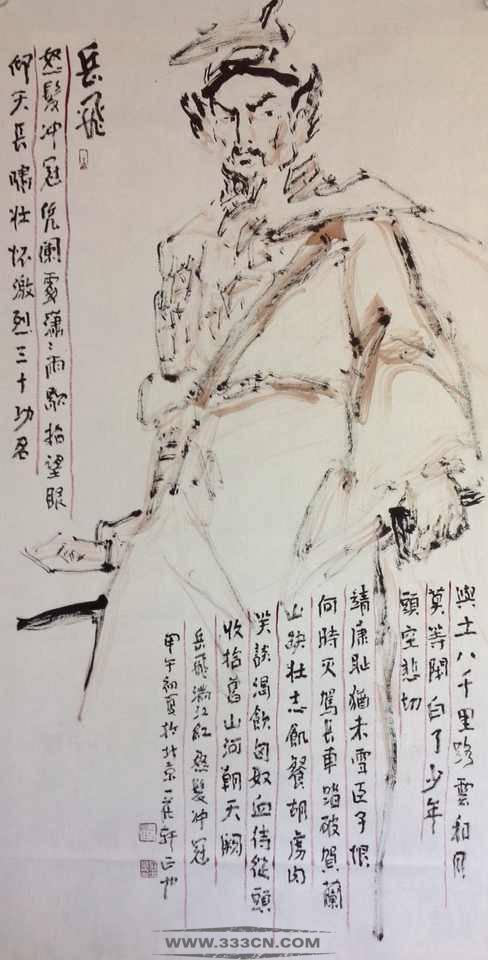 岳飛
怒髮冲冠凭闌處瀟〻雨歇抬望眼
仰天長嘯壯懷激烈三十功名
與土八千里路雲和月
莫等閑白了少年
頭空悲切
靖康耻猶未雪臣子恨
何時灭駕長車踏破賀蘭
山缺壮志飢餐胡虜肉
笑談渴飲匈奴血待從頭
收拾舊山河朝天闕
岳飛滿江紅怒髮冲冠
甲午初夏於北京一軒
WWW.333CN.COM